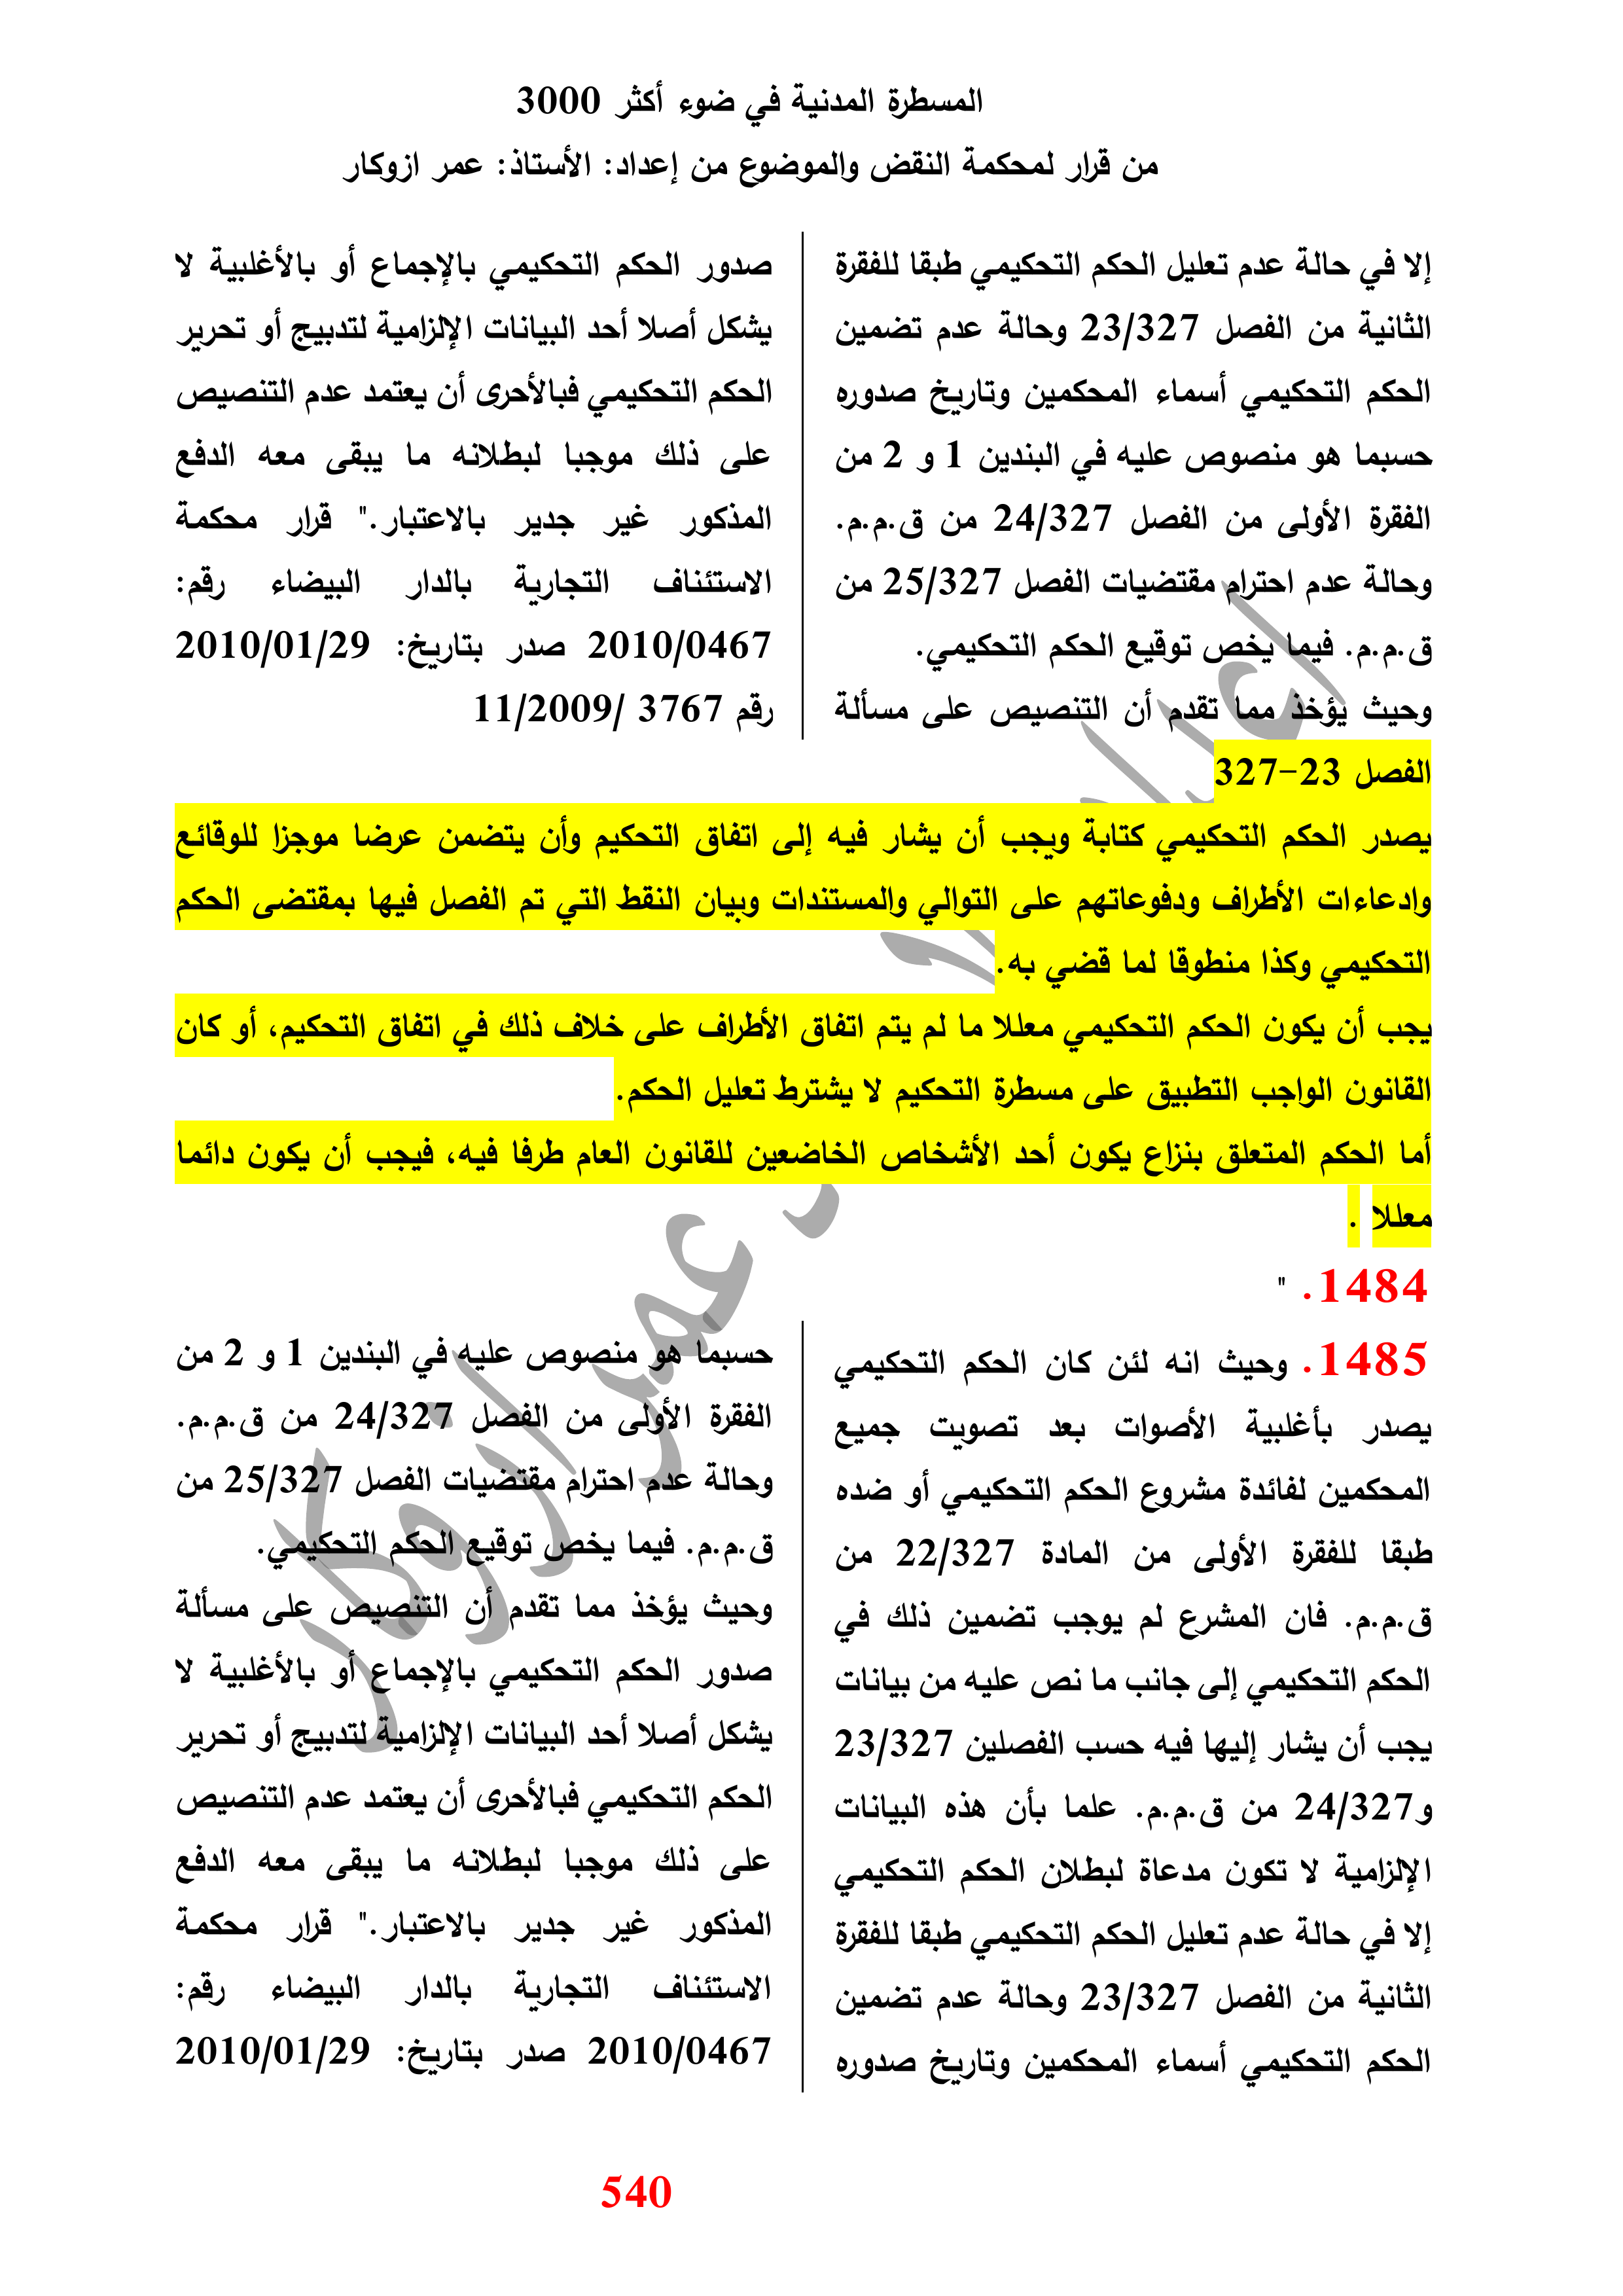 المسطرة المدنية في ضوء أكثر 3000
من قرار لمحكمة النقض والموضوع من إعداد: الأستاذ: عمر ازوكار
إلا في حالة عدم تعليل الحكم التحكيمي طبقا للفقرة
الثانية من الفصل 23/327 وحالة عدم تضمين
الحكم التحكيمي أسماء المحكمين وتاريخ صدوره
حسبما هو منصوص عليه في البندين 1 و 2 من
الفقرة الأولى من الفصل 24/327 من ق.م.م.
وحالة عدم احترام مقتضيات الفصل 25/327 من
ق.م.م. فيما يخص توقيع الحكم التحكيمي.
وحيث يؤخذ مما تقدم أن التنصيص على مسألة
صدور الحكم التحكيمي بالإجماع أو بالأغلبية لا
يشكل أصلا أحد البيانات الإلزامية لتدبيج أو تحرير
الحكم التحكيمي فبالأحرى أن يعتمد عدم التنصيص
على ذلك موجبا لبطلانه ما يبقى معه الدفع
المذكور غير جدير بالاعتبار." قرار محكمة
الاستئناف التجارية بالدار البيضاء رقم:
2010/0467 صدر بتاريخ: 2010/01/29
رقم 3767 /11/2009
الفصل 23-327
يصدر الحكم التحكيمي كتابة ويجب أن يشار فيه إلى اتفاق التحكيم وأن يتضمن عرضا موجزا للوقائع
وادعاءات الأطراف ودفوعاتهم على التوالي والمستندات وبيان النقط التي تم الفصل فيها بمقتضى الحكم
التحكيمي وكذا منطوقا لما قضي به.
يجب أن يكون الحكم التحكيمي معللا ما لم يتم اتفاق الأطراف على خلاف ذلك في اتفاق التحكيم، أو كان
القانون الواجب التطبيق على مسطرة التحكيم لا يشترط تعليل الحكم.
أما الحكم المتعلق بنزاع يكون أحد الأشخاص الخاضعين للقانون العام طرفا فيه، فيجب أن يكون دائما
معللا .
1484. "
1485. وحيث انه لئن كان الحكم التحكيمي
يصدر بأغلبية الأصوات بعد تصويت جميع
المحكمين لفائدة مشروع الحكم التحكيمي أو ضده
طبقا للفقرة الأولى من المادة 22/327 من
ق.م.م. فان المشرع لم يوجب تضمين ذلك في
الحكم التحكيمي إلى جانب ما نص عليه من بيانات
يجب أن يشار إليها فيه حسب الفصلين 23/327
و24/327 من ق.م.م. علما بأن هذه البيانات
الإلزامية لا تكون مدعاة لبطلان الحكم التحكيمي
إلا في حالة عدم تعليل الحكم التحكيمي طبقا للفقرة
الثانية من الفصل 23/327 وحالة عدم تضمين
الحكم التحكيمي أسماء المحكمين وتاريخ صدوره
حسبما هو منصوص عليه في البندين 1 و 2 من
الفقرة الأولى من الفصل 24/327 من ق.م.م.
وحالة عدم احترام مقتضيات الفصل 25/327 من
ق.م.م. فيما يخص توقيع الحكم التحكيمي.
وحيث يؤخذ مما تقدم أن التنصيص على مسألة
صدور الحكم التحكيمي بالإجماع أو بالأغلبية لا
يشكل أصلا أحد البيانات الإلزامية لتدبيج أو تحرير
الحكم التحكيمي فبالأحرى أن يعتمد عدم التنصيص
على ذلك موجبا لبطلانه ما يبقى معه الدفع
المذكور غير جدير بالاعتبار." قرار محكمة
الاستئناف التجارية بالدار البيضاء رقم:
2010/0467 صدر بتاريخ: 2010/01/29
عمر ازوكار
540